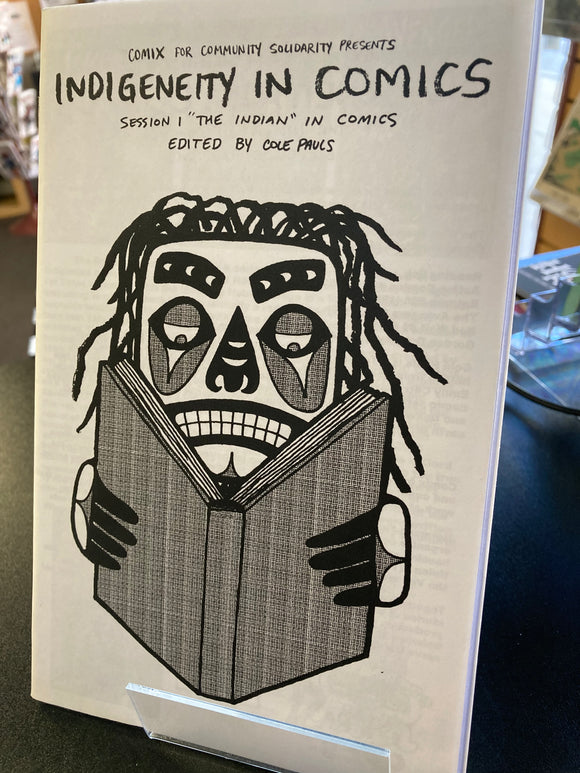 COMIX FOR COMMUNITY SOLIDARITY PRESENTS
INDIGENEITY IN COMICS
SESSION 1 "THE INDIAN" IN COMICS
EDITED BY COLE PAULS